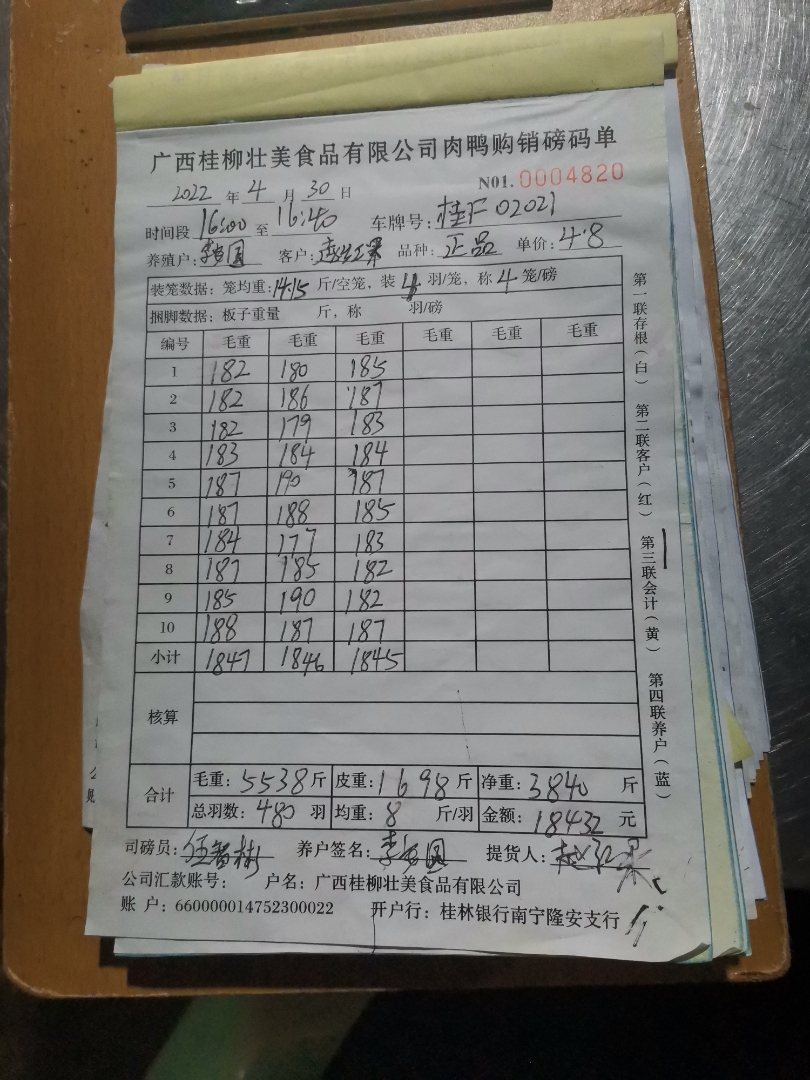 广西桂柳壮美食品有限公司肉鸭购销磅码单
2022 年 4 月 30 日 N01. 0004820
时间段 16:00 至 16:40 车牌号: 桂F02021
养殖户: 客户: 品种: 正品 单价: 4.8
装笼数据: 笼均重: 14.15 斤/空笼, 装 4 羽/笼, 称 4 笼/磅
捆脚数据: 板子重量 斤, 称 羽/磅
编号 毛重 毛重 毛重 毛重 毛重 毛重
1 182 180 185
2 182 186 187
3 182 179 183
4 183 184 184
5 187 190 187
6 187 188 185
7 184 177 183
8 187 185 182
9 185 190 182
10 188 187 187
小计 1847 1846 1845
核算
合计 毛重: 5538 斤 皮重: 1698 斤 净重: 3840 斤
总羽数: 480 羽 均重: 8 斤/羽 金额: 18432 元
司磅员: 伍智彬 养户签名: 提货人:
公司汇款账号: 户名: 广西桂柳壮美食品有限公司
账 户: 660000014752300022 开户行: 桂林银行南宁隆安支行
第一联存根(白) 第二联客户(红) 第三联会计(黄) 第四联养户(蓝)